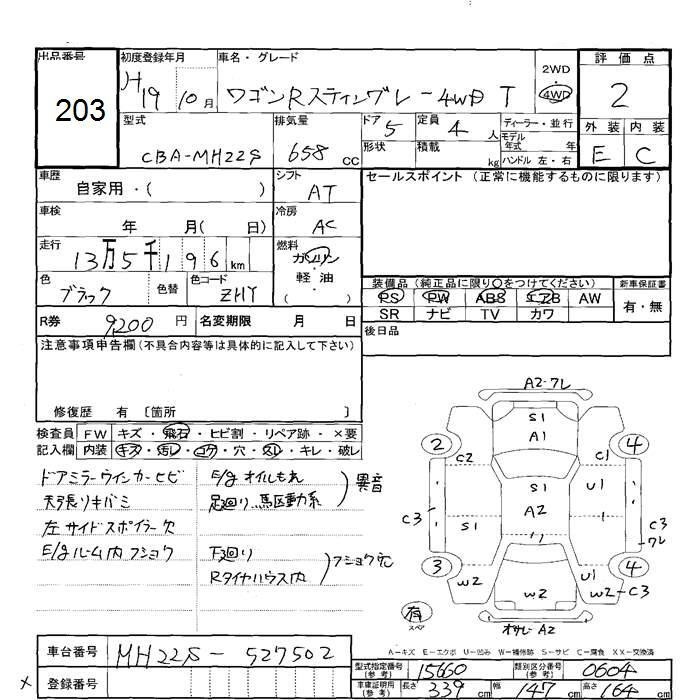 出品番号
203
初度登録年月
H19 10月
車名・グレード
ワゴンRスティングレー4WD T
2WD
4WD
評価点
2
外装 内装
E C
型式
CBA-MH22S
排気量
658 cc
ドア 5
形状
定員 4 人
積載 kg
ディーラー・並行
モデル年式 年
ハンドル 左・右
車歴
自家用・( )
シフト
AT
車検
年 月( 日)
冷房
AC
走行
13万5千196 km
燃料
ガソリン
軽油
( )
色
ブラック
色替
色コード
ZHY
セールスポイント (正常に機能するものに限ります)
装備品(純正品に限り○をつけてください)
PS PW ABS エアB AW
SR ナビ TV カワ
新車保証書
有・無
R券 9,200 円
名変期限 月 日
後日品
注意事項申告欄(不具合内容等は具体的に記入して下さい)
修復歴 有 〔箇所 〕
検査員記入欄
FW キズ・飛石・ヒビ割・リペア跡・×要
内装 キズ・汚レ・コゲ・穴・スレ・キレ・破レ
ドアミラーウインカーヒビ
天張リキバミ
左サイドスポイラー欠
E/gルーム内フショク
E/gオイルもれ
足廻り、馬区動系
異音
下廻り
Rタイヤハウス内
フショク穴
A2・ワレ
S1
A1
2
4
C2
C1
S1
U1
A2
C3
S1
C3
ワレ
3
4
W2
U1
W2
W2-C3
有
スペア
オサレ・A2
A-キズ E-エクボ U-凹み W-補修跡 S-サビ C-腐食 XX-交換済
車台番号
MH22S-527502
登録番号
×
型式指定番号(参考) 15660
類別区分番号(参考) 0604
車庫証明用(参考) 長さ 339 cm 幅 147 cm 高さ 164 cm